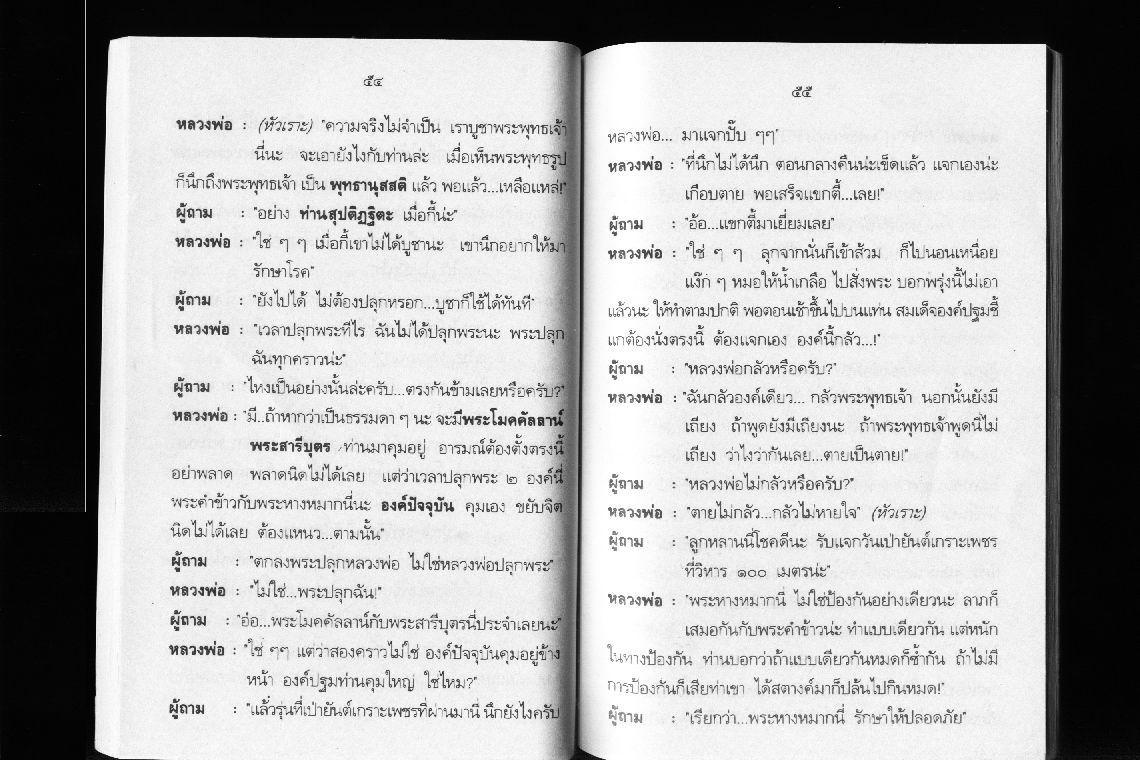 ๕๔
หลวงพ่อ : (หัวเราะ) "ความจริงไม่จำเป็น เราบูชาพระพุทธเจ้า
นี่นะ จะเอายังไงกับท่านล่ะ เมื่อเห็นพระพุทธรูป
ก็นึกถึงพระพุทธเจ้า เป็น พุทธานุสสติ แล้ว พอแล้ว...เหลือแหล่!"
ผู้ถาม : "อย่าง ท่านสุปติฏฐิตะ เมื่อกี้น่ะ"
หลวงพ่อ : "ใช่ ๆ ๆ เมื่อกี้เขาไม่ได้บูชานะ เขานึกอยากให้มา
รักษาโรค"
ผู้ถาม : "ยังไปได้ ไม่ต้องปลุกหรอก...บูชาก็ใช้ได้ทันที"
หลวงพ่อ : "เวลาปลุกพระทีไร ฉันไม่ได้ปลุกพระนะ พระปลุก
ฉันทุกคราวน่ะ"
ผู้ถาม : "ไหงเป็นอย่างนั้นล่ะครับ...ตรงกันข้ามเลยหรือครับ?"
หลวงพ่อ : "มี..ถ้าหากว่าเป็นธรรมดา ๆ นะ จะมีพระโมคคัลลาน์
พระสารีบุตร ท่านมาคุมอยู่ อารมณ์ต้องตั้งตรงนี้
อย่าพลาด พลาดนิดไม่ได้เลย แต่ว่าเวลาปลุกพระ ๒ องค์นี่
พระคำข้าวกับพระหางหมากนี่นะ องค์ปัจจุบัน คุมเอง ขยับจิต
นิดไม่ได้เลย ต้องแหนว...ตามนั้น"
ผู้ถาม : "ตกลงพระปลุกหลวงพ่อ ไม่ใช่หลวงพ่อปลุกพระ"
หลวงพ่อ : "ไม่ใช่...พระปลุกฉัน!"
ผู้ถาม : "อ๋อ...พระโมคคัลลาน์กับพระสารีบุตรนี่ประจำเลยนะ"
หลวงพ่อ : "ใช่ ๆๆ แต่ว่าสองคราวไม่ใช่ องค์ปัจจุบันคุมอยู่ข้าง
หน้า องค์ปฐมท่านคุมใหญ่ ใช่ไหม?"
ผู้ถาม : "แล้วรุ่นที่เป่ายันต์เกราะเพชรที่ผ่านมานี่ นึกยังไงครับ
๕๕
หลวงพ่อ... มาแจกปั๊บ ๆๆ"
หลวงพ่อ : "ที่นึกไม่ได้นึก ตอนกลางคืนน่ะเข็ดแล้ว แจกเองน่ะ
เกือบตาย พอเสร็จแขกตี้...เลย!"
ผู้ถาม : "อ้อ...แขกตี้มาเยี่ยมเลย"
หลวงพ่อ : "ใช่ ๆ ๆ ลุกจากนั่นก็เข้าส้วม ก็ไปนอนเหนื่อย
แง๊ก ๆ หมอให้น้ำเกลือ ไปสั่งพระ บอกพรุ่งนี้ไม่เอา
แล้วนะ ให้ทำตามปกติ พอตอนเช้าขึ้นไปบนแท่น สมเด็จองค์ปฐมชี้
แกต้องนั่งตรงนี้ ต้องแจกเอง องค์นี้กลัว...!"
ผู้ถาม : "หลวงพ่อกลัวหรือครับ?"
หลวงพ่อ : "ฉันกลัวองค์เดียว... กลัวพระพุทธเจ้า นอกนั้นยังมี
เถียง ถ้าพูดยังมีเถียงนะ ถ้าพระพุทธเจ้าพูดนี่ไม่
เถียง ว่าไงว่ากันเลย...ตายเป็นตาย!"
ผู้ถาม : "หลวงพ่อไม่กลัวหรือครับ?"
หลวงพ่อ : "ตายไม่กลัว...กลัวไม่หายใจ" (หัวเราะ)
ผู้ถาม : "ลูกหลานนี่โชคดีนะ รับแจกวันเป่ายันต์เกราะเพชร
ที่วิหาร ๑๐๐ เมตรน่ะ"
หลวงพ่อ : "พระหางหมากนี่ ไม่ใช่ป้องกันอย่างเดียวนะ ลาภก็
เสมอกันกับพระคำข้าวน่ะ ทำแบบเดียวกัน แต่หนัก
ในทางป้องกัน ท่านบอกว่าถ้าแบบเดียวกันหมดก็ซ้ำกัน ถ้าไม่มี
การป้องกันก็เสียท่าเขา ได้สตางค์มาก็ปล้นไปกินหมด!"
ผู้ถาม : "เรียกว่า...พระหางหมากนี่ รักษาให้ปลอดภัย"